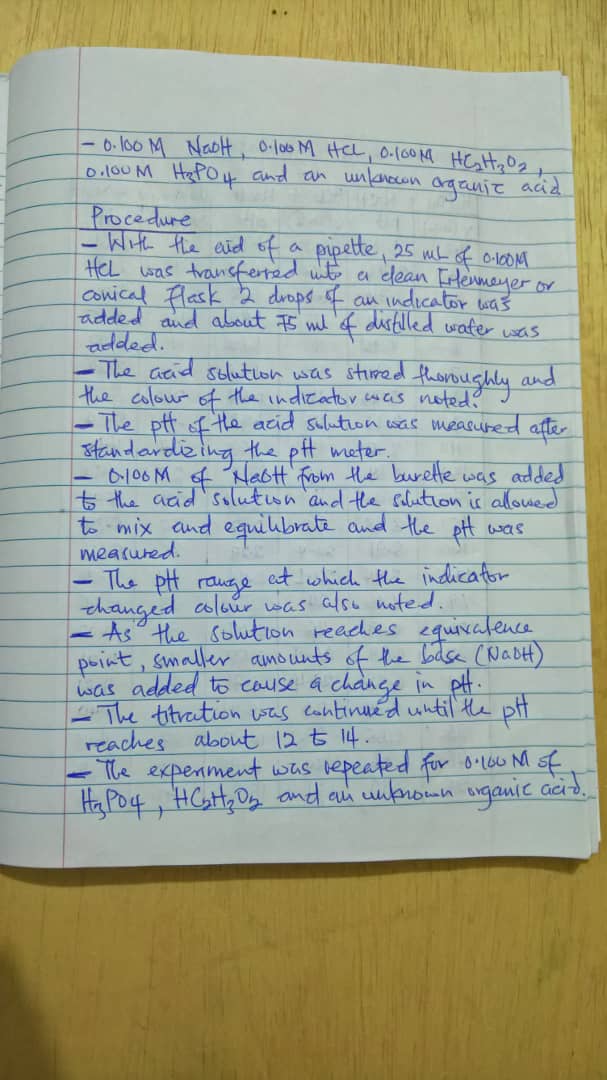 - 0.100 M NaOH, 0.100 M HCL, 0.100M HC2H3O2,
0.100 M H3PO4 and an unknown organic acid
Procedure
- With the aid of a pipette, 25 mL of 0.100M
HCL was transferred into a clean Erlenmeyer or
conical flask 2 drops of an indicator was
added and about 75 ml of distilled water was
added.
- The acid solution was stirred thoroughly and
the colour of the indicator was noted.
- The pH of the acid solution was measured after
standardizing the pH meter.
- 0.100 M of NaOH from the burette was added
to the acid solution and the solution is allowed
to mix and equilibrate and the pH was
measured.
- The pH range at which the indicator
changed colour was also noted.
- As the solution reaches equivalence
point, smaller amounts of the base (NaOH)
was added to cause a change in pH.
- The titration was continued until the pH
reaches about 12 to 14.
- The experiment was repeated for 0.100 M of
H3PO4, HC2H3O2 and an unknown organic acid.